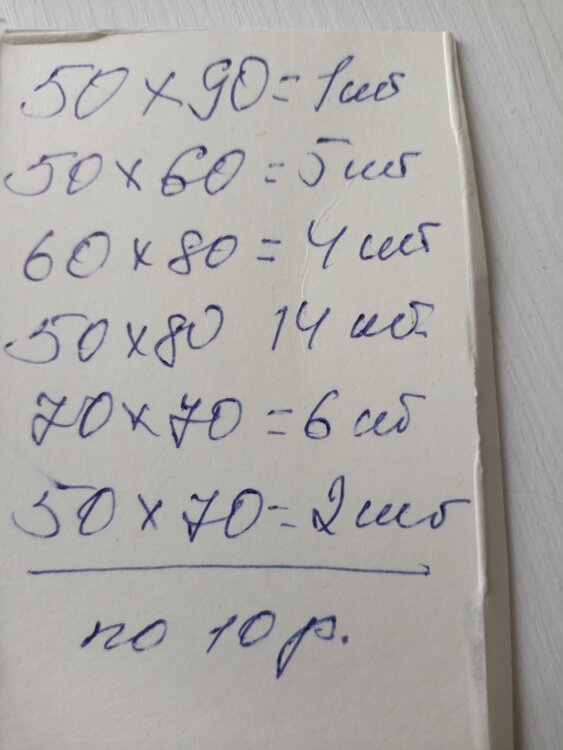 50х90=1шт
50х60=5шт
60х80=4шт
50х80 14шт.
70х70=6шт
50х70=2шт
по 10р.